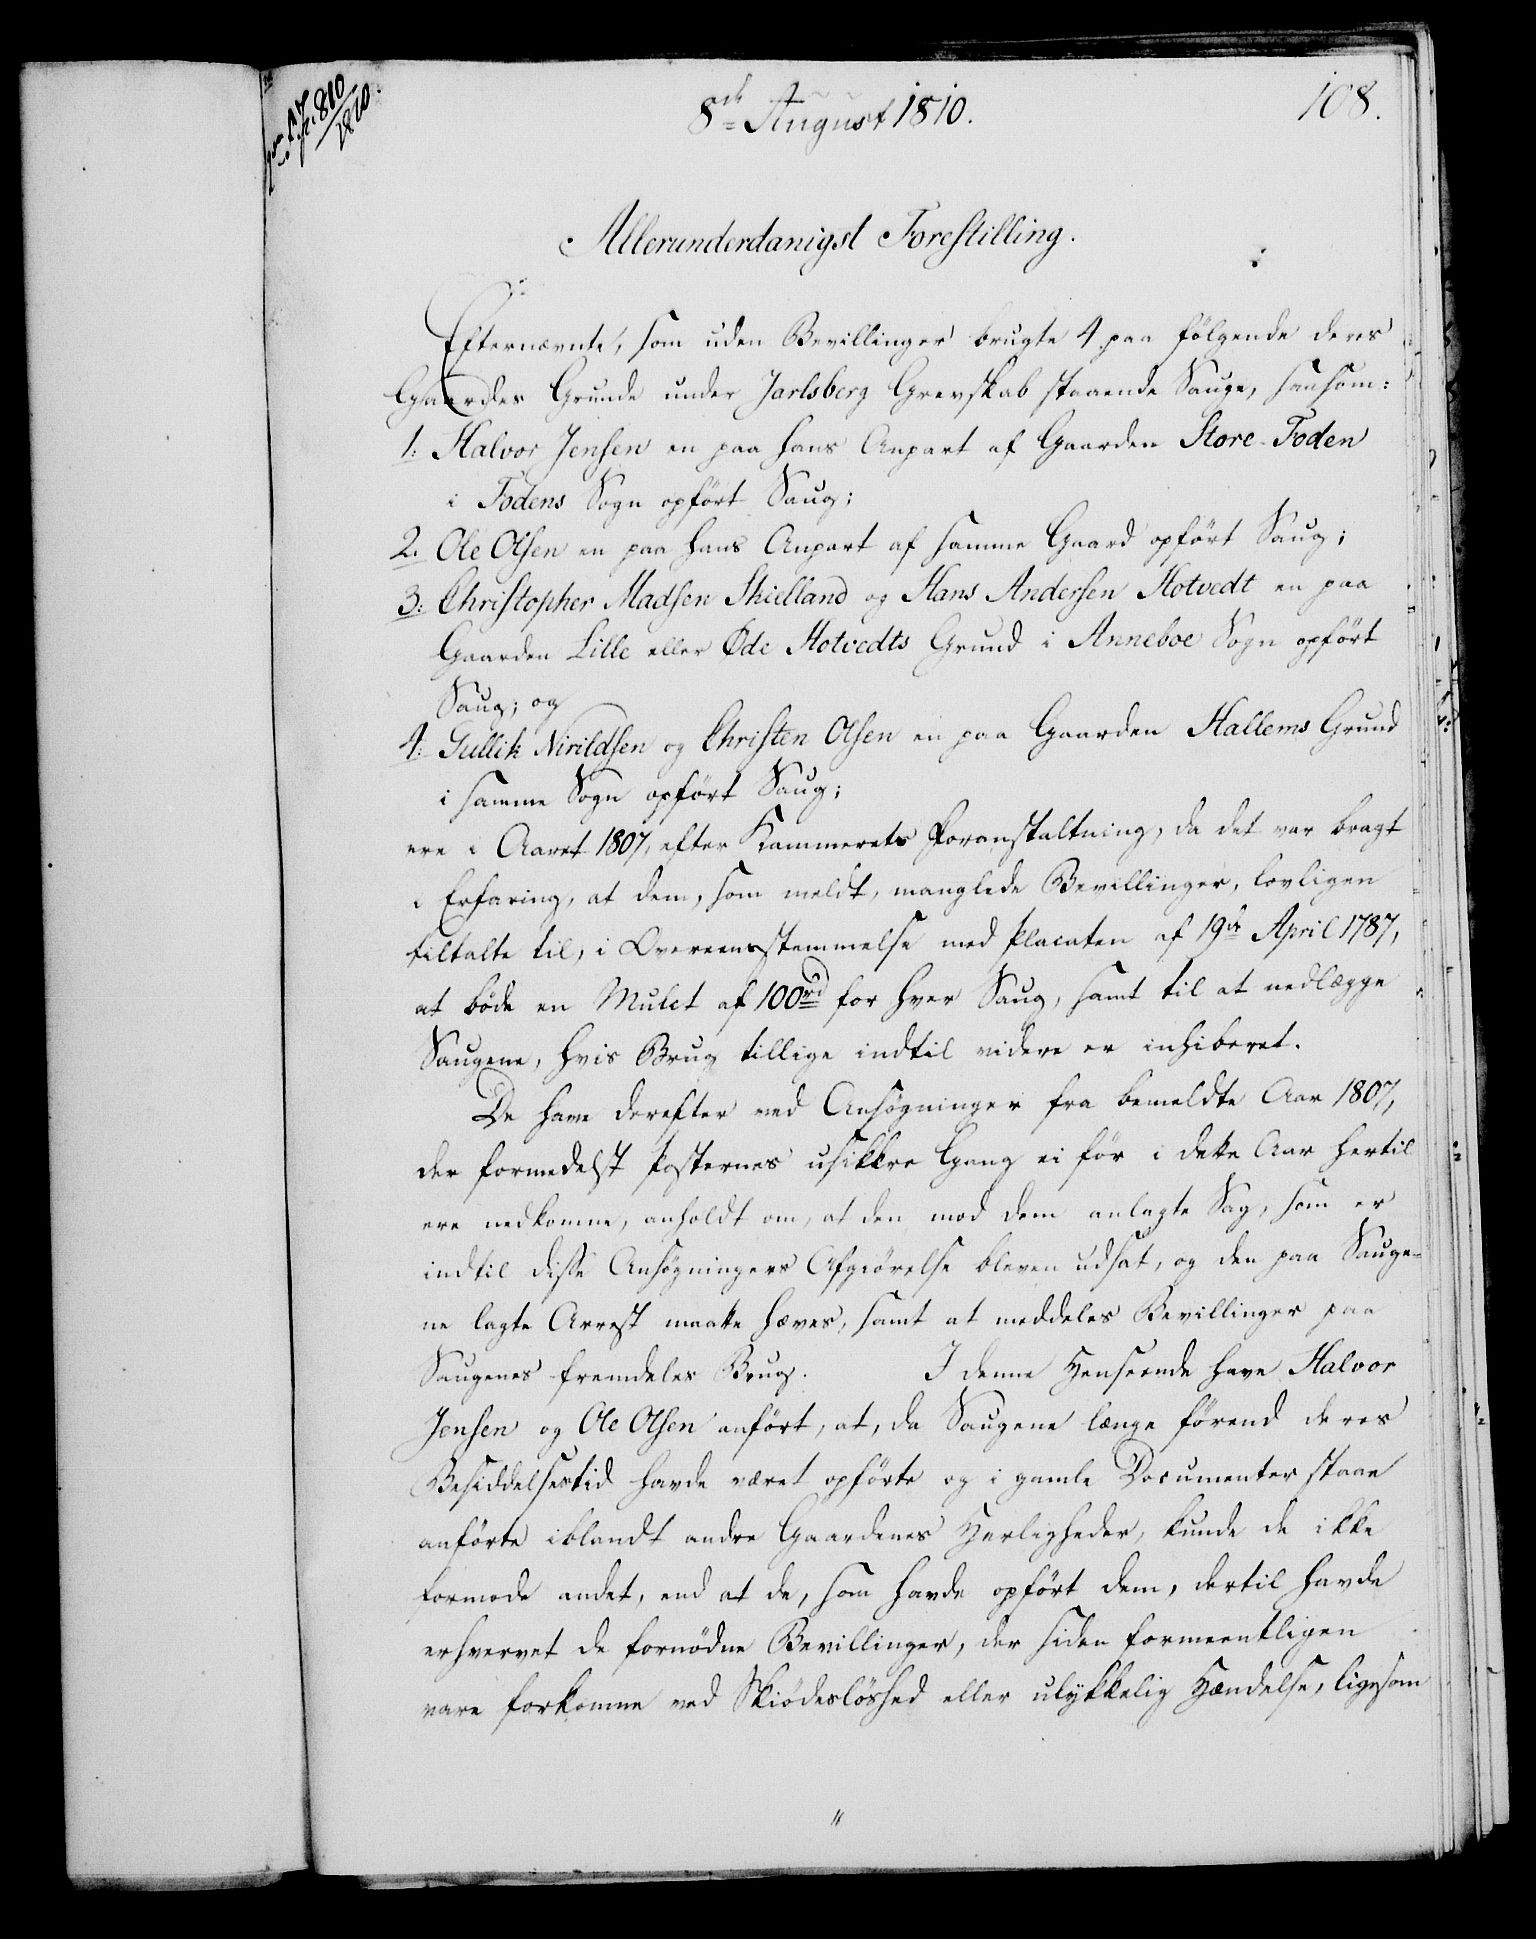 8de August 1810.
108.
Allerunderdanigst Forestilling.
Efternævnte, som uden Bevillinger brugte 4 paa følgende deres
Gaardes Grunde under Jarlsberg Grevskab staaende Sauge, saasom:
1. Halvor Jensen en paa hans Anpart af Gaarden Store-Foden
i Fodens Sogn opført Saug;
2. Ole Olsen en paa hans Anpart af samme Gaard opført Saug;
3. Christopher Madsen Skielland og Hans Andersen Hotvedt en paa
Gaarden Lille eller Øde Hotvedts Grund i Anneboe Sogn opført
Saug; og
4. Gullik Nirildsen og Christen Olsen en paa Gaarden Hallems Grund
i samme Sogn opført Saug;
ere i Aaret 1807, efter Kammerets Foranstaltning, da det var bragt
i Erfaring, at dem, som meldt, manglede Bevillinger, lovligen
tiltalte til, i Overeensstemmelse med Placaten af 19de April 1787,
at bøde en Mulct af 100rd for hver Saug, samt til at nedlægge
Saugene, hvis Brug tillige indtil videre er inhiberet.
De have derefter ved Ansøgninger fra bemeldte Aar 1807,
der formedelst Posternes usikkre Gang ei før i dette Aar hertil
ere nedkomne, anholdt om, at den mod dem anlagte Sag, som er
indtil disse Ansøgningers Afgiørelse bleven udsat, og den paa Sauge-
ne lagte Arrest maatte hæves, samt at meddeles Bevillinger paa
Saugenes fremdeles Brug. I denne Henseende have Halvor
Jensen og Ole Olsen anført, at, da Saugene længe førend deres
Besiddelsestid havde været opførte og i gamle Documenter staae
anførte iblandt andre Gaardenes Herligheder, kunde de ikke
formode andet, end at de, som havde opført dem, dertil havde
erhvervet de fornødne Bevillinger, der siden formeentligen
vare forkomne ved Skiødesløshed eller ulykkelig Hændelse, ligesom